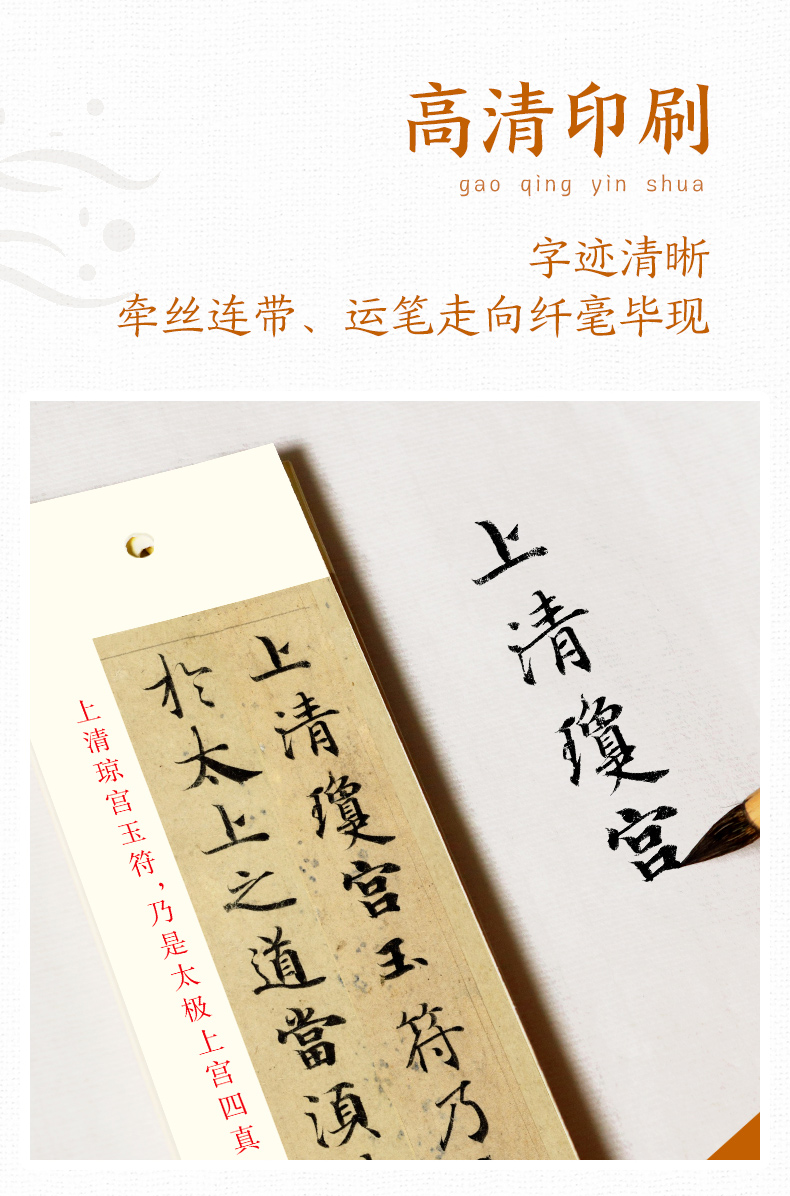 高清印刷
gao qing yin shua
字迹清晰
牵丝连带、运笔走向纤毫毕现
上清瓊宫
上清瓊宫玉符乃
於太上之道當須
上清琼宫玉符，乃是太极上宫四真